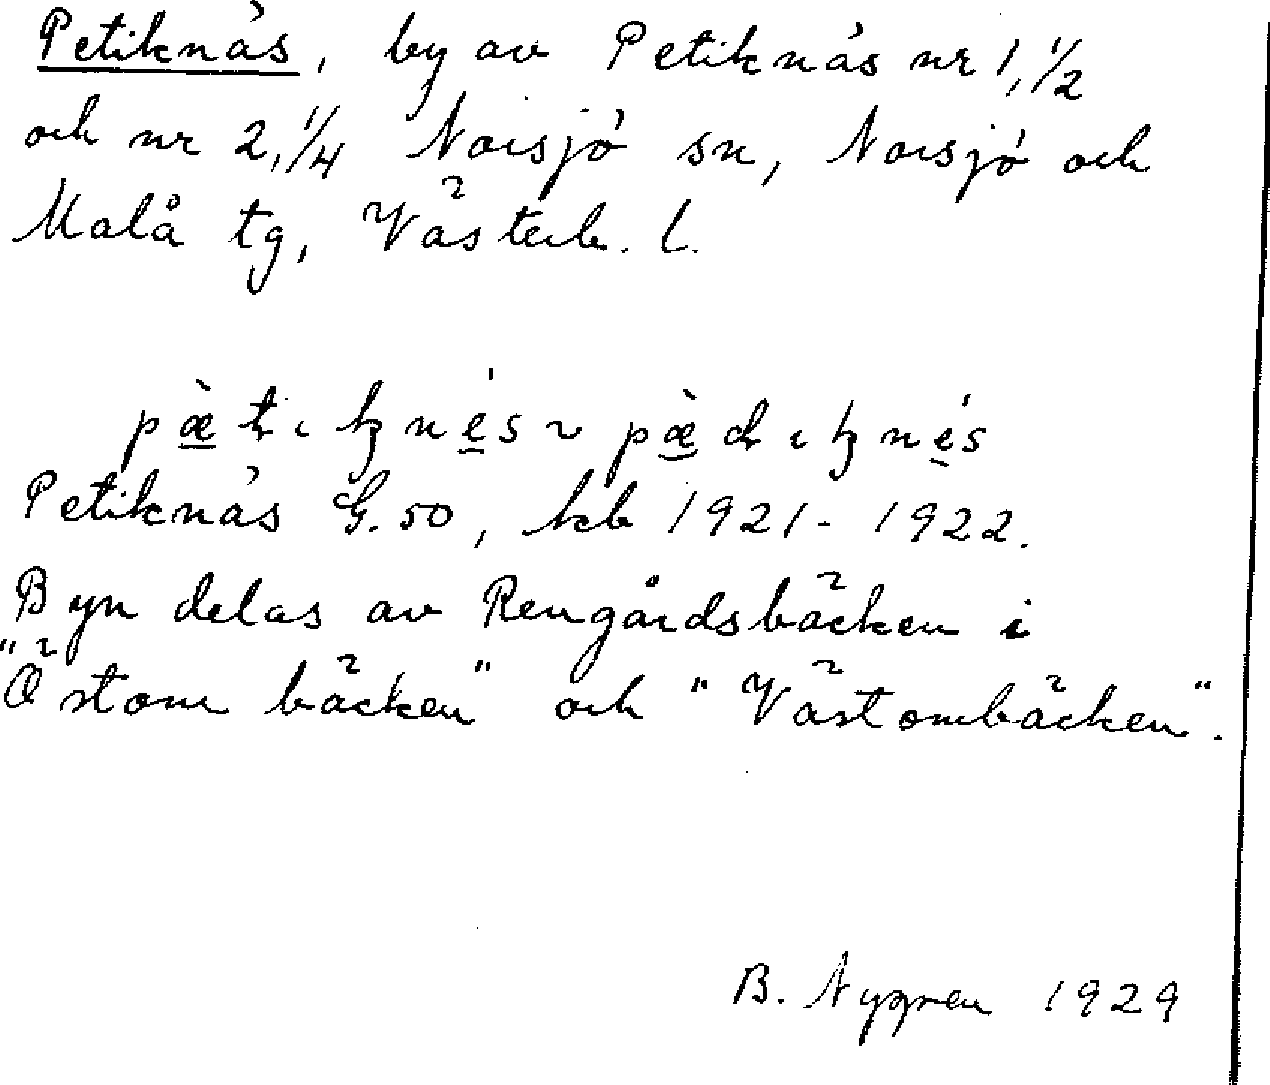 Petiknäs, by av Petiknäs nr 1, 1/2
och nr 2, 1/4 Norsjö sn, Norsjö och
Malå tg, Västerb. l.
Petiknäs G. 50, kb 1921-1922.
Byn delas av Rengårdsbäcken i
"Östom bäcken" och "Västombäcken".
B. Nygren 1929